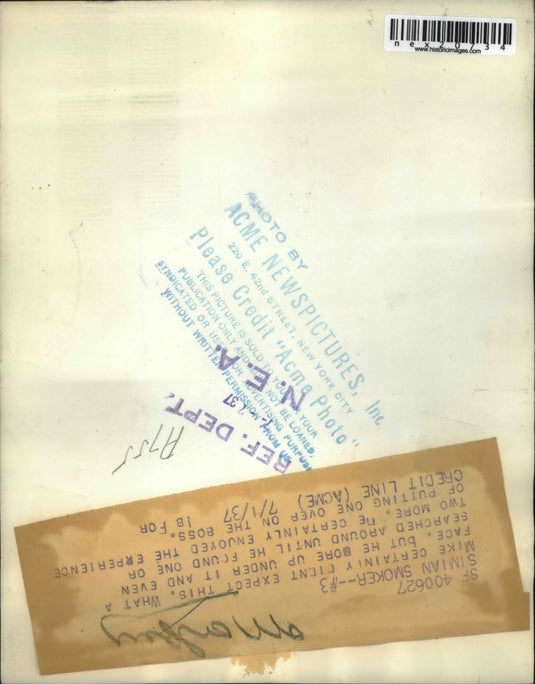 nex20734
www.historicimages.com
PHOTO BY
ACME NEWSPICTURES, Inc
220 E. 42nd STREET, NEW YORK CITY
Please Credit "Acme Photo"
THIS PICTURE IS SOLD TO YOU YOUR
PUBLICATION ONLY AND NOT BE LOANED,
SYNDICATED OR USED FOR ADVERTISING PURPOSE
WITHOUT WRITTEN PERMISSION FROM US
N.E.A.
REF. DEPT.
37
A755
SF 400627
SIMIAN SMOKER--#3
MIKE CERTAINLY EXPECT THIS. WHAT A
FACE. BUT HE BORE UP UNDER IT AND EVEN
SEARCHED AROUND UNTIL HE FOUND ONE OR
TWO MORE. HE CERTAINLY ENJOYED THE EXPERIENCE
OF PUTTING ONE OVER ON THE BOSS.
CREDIT LINE (ACME) 7/1/37 IB FOR